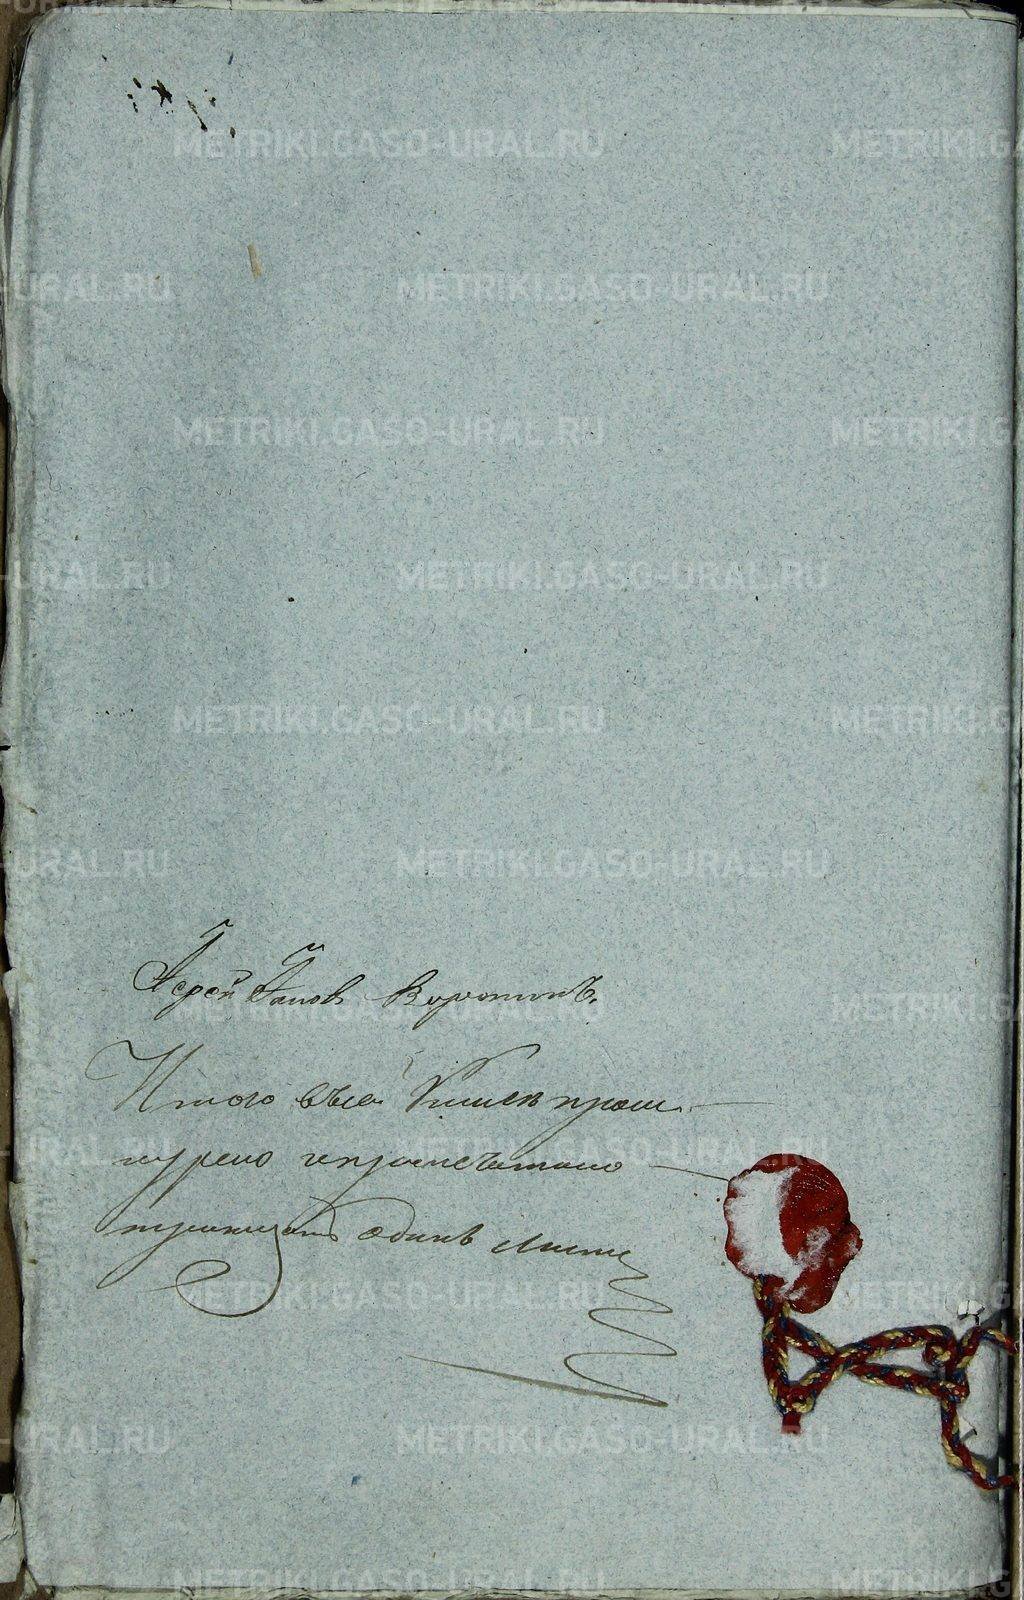 METRIKI.GASO-URAL.RU
Іерей Іаковъ
Итого въ сей Книгѣ прош-
нурено и припечатано
тритцать одинъ листъ